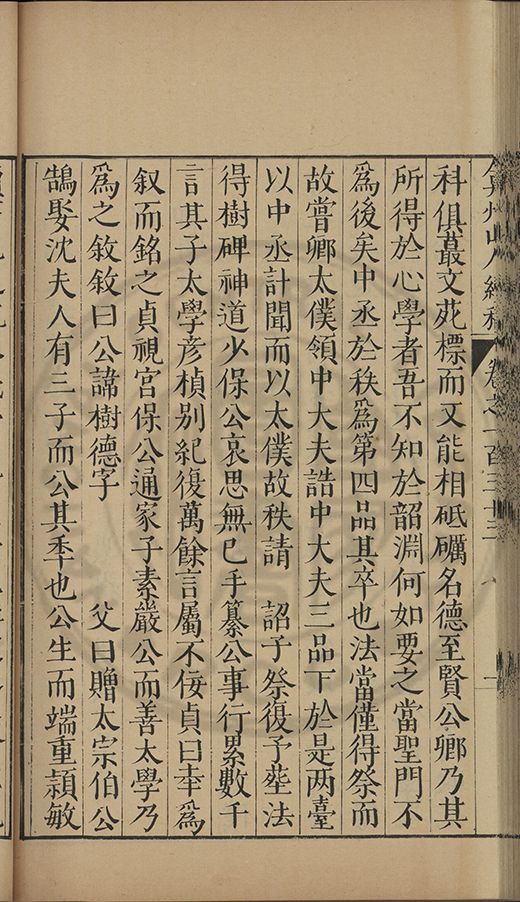 弇州山人續稿 卷之一百三十三 一
科俱蕞文苑標而又能相砥礪名德至賢公卿乃其
所得於心學者吾不知於韶淵何如要之當聖門不
為後矣中丞於秩為第四品其卒也法當僅得祭而
故嘗卿太僕領中大夫誥中大夫三品下於是兩臺
以中丞計聞而以太僕故秩請 詔予祭復予塟法
得樹碑神道少保公哀思無已手纂公事行累數千
言其子太學彥楨别紀復萬餘言屬不佞貞曰幸爲
叙而銘之貞視宮保公通家子素嚴公而善太學乃
爲之敘敘曰公諱樹德字 父曰贈太宗伯公
鵠娶沈夫人有三子而公其季也公生而端重頴敏